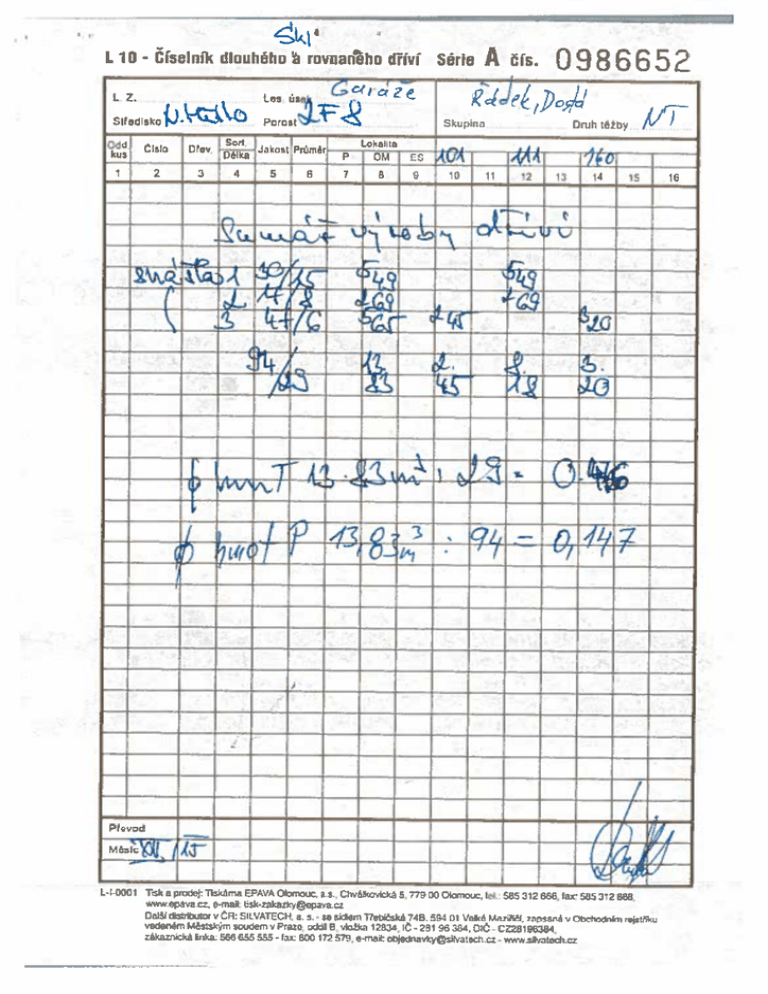 Skl
L 10 - Číselník dlouhého a rovnaného dříví Série A čís. 0986652
L. Z. Les. úsek Garáže Řádek, Dostá
Středisko Porost 2F8 Skupina Druh těžby NT
Odd. kus Číslo Dřev. Sort. Délka Jakost Průměr Lokalita P OM ES 101 111 160
1 2 3 4 5 6 7 8 9 10 11 12 13 14 15 16
Sumář výroby dříví
1 30/15 549 549
2. 17/8 269 269
3 47/6 565 245 320
94/29 13.83 2.45 8.18 3.20
ϕ hmT 13.83 m³ : 29 = 0.476
ϕ hmot P 13,83 m³ : 94 = 0,147
Převod
Měsíc /15
L-I-0001 Tisk a prodej: Tiskárna EPAVA Olomouc, a.s., Chválkovická 5, 779 00 Olomouc, tel.: 585 312 666, fax: 585 312 668,
www.epava.cz, e-mail: tisk-zakazky@epava.cz
Další distributor v ČR: SILVATECH, a. s. - se sídlem Třebíčská 74B, 594 01 Velké Meziříčí, zapsaná v Obchodním rejstříku
vedeném Městským soudem v Praze, oddíl B, vložka 12834, IČ - 281 96 384, DIČ - CZ28196384,
zákaznická linka: 566 655 555 - fax: 800 172 579, e-mail: objednavky@silvatech.cz - www.silvatech.cz